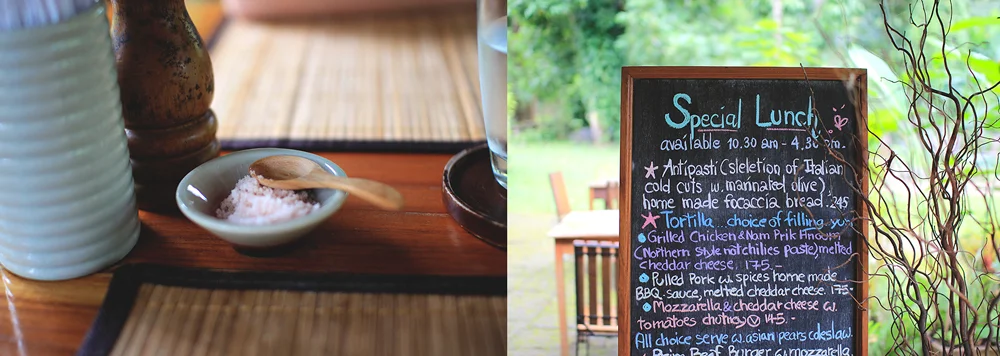 Special Lunch
available 10.30 am - 4.30 pm.
Antipasti (sleletion of Italian
cold cuts w. marinated olive)
home made focaccia bread. 245
Tortilla... choice of filling yu-
Grilled Chicken & Nam Prik
(Northern style notchilies paste), melted
cheddar cheese. 175.-
Pulled Pork w. spices home made
BBQ. sauce, melted cheddar cheese. 175-
Mozzarella & cheddar cheese w.
tomatoes chutney V 145.-
All choice serve w. asian pears coleslaw.
Beef Burger w mozzarella